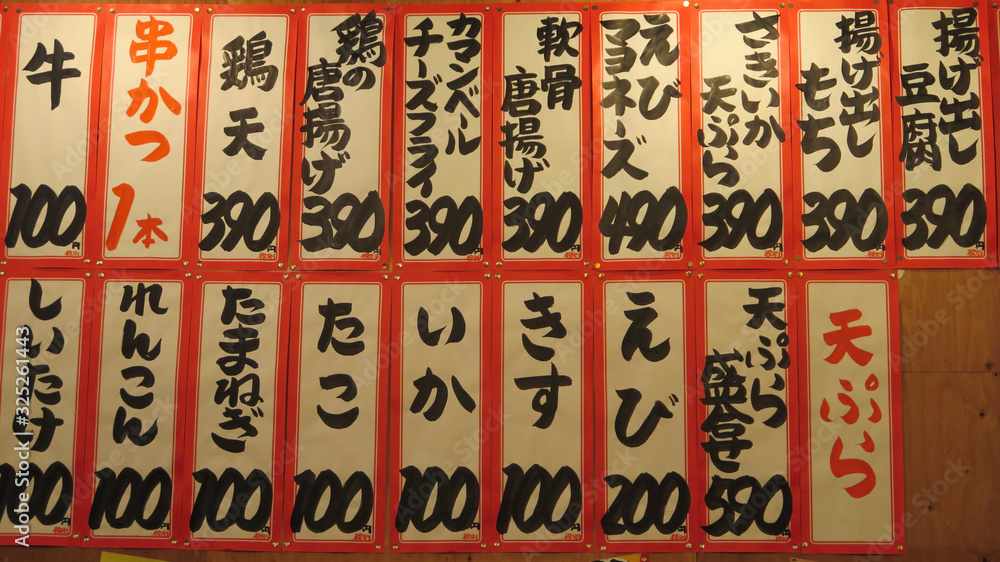 揚げ出し
豆腐
390円
税別
揚げ出し
もち
390円
税別
さきいか
天ぷら
390円
税別
えび
マヨネーズ
490円
税別
軟骨
唐揚げ
390円
税別
カマンベール
チーズフライ
390円
税別
鶏の
唐揚げ
390円
税別
鶏天
390円
税別
串かつ
1本
牛
100円
天ぷら
天ぷら
盛合せ
590円
税別
えび
200円
税別
きす
100円
税別
いか
100円
税別
たこ
100円
税別
たまねぎ
100円
税別
れんこん
100円
税別
しいたけ
100円
税別
Adobe Stock | #325261443